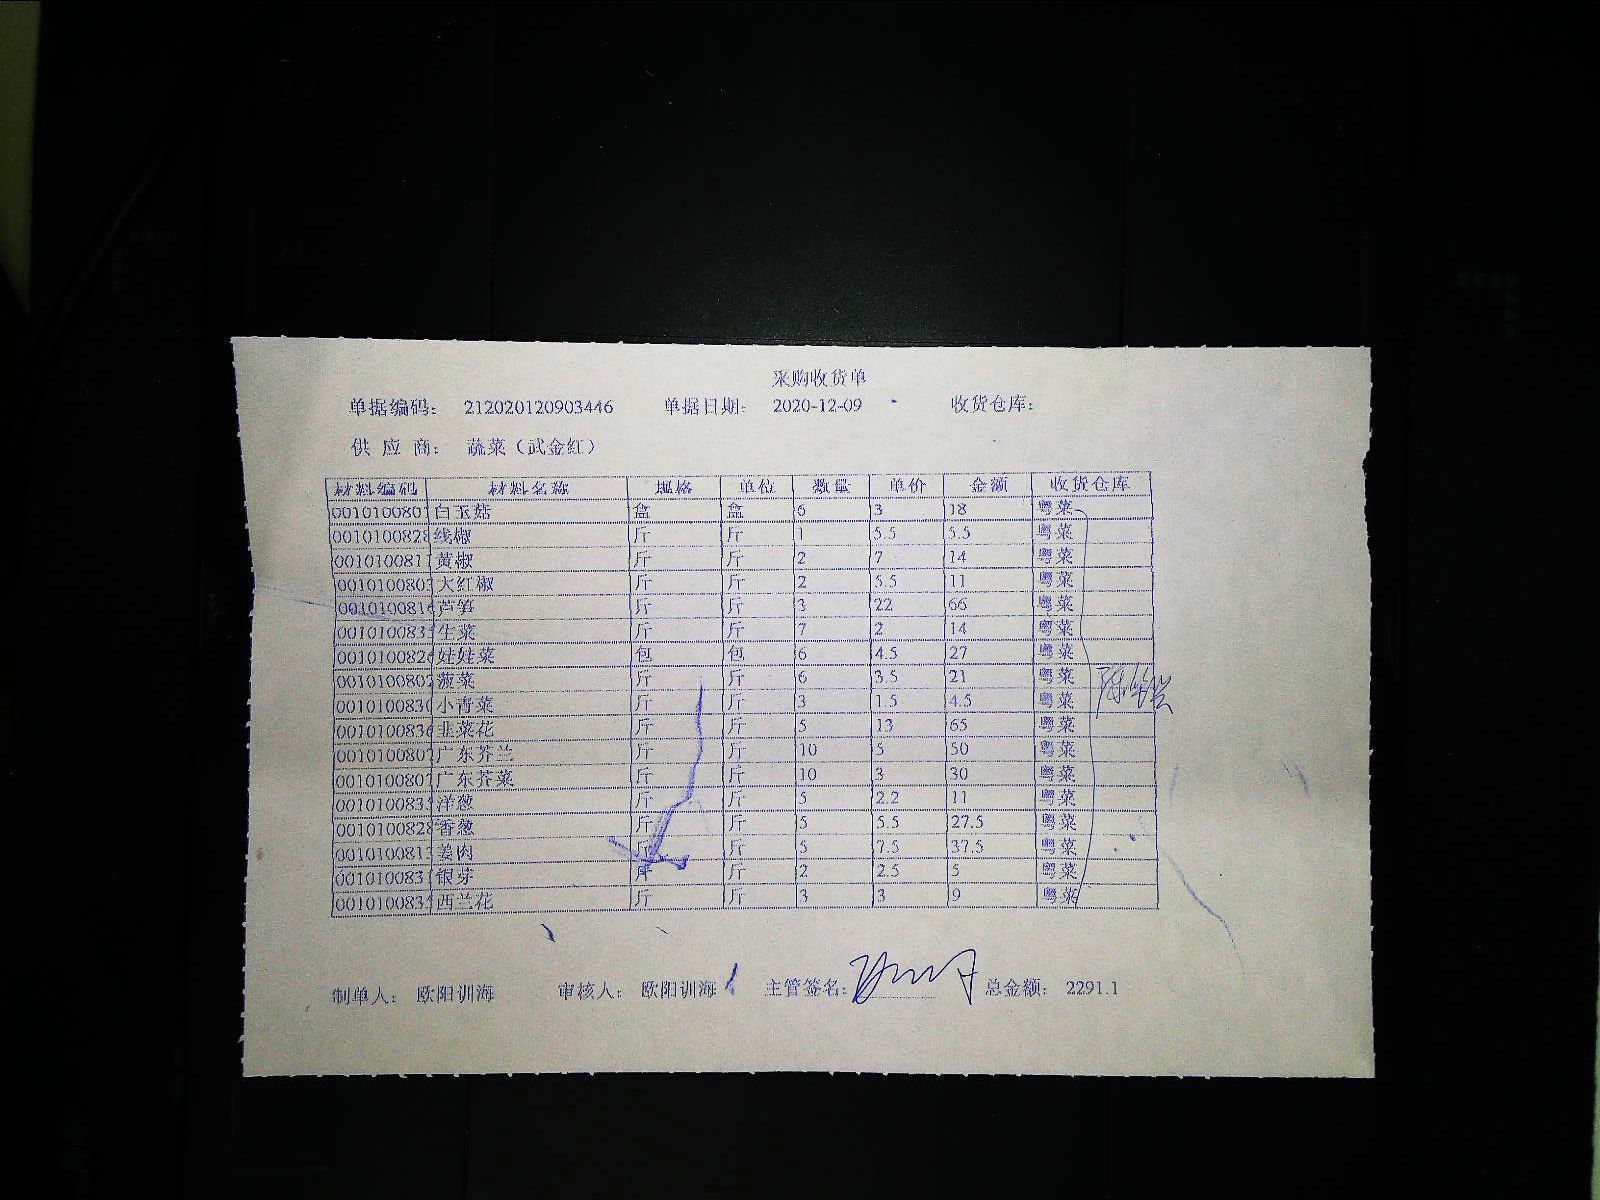 采购收货单
单据编码： 212020120903446 单据日期： 2020-12-09 收货仓库：
供 应 商： 蔬菜（武金红）
材料编码 材料名称 规格 单位 数量 单价 金额 收货仓库
001010080 白玉菇 盒 盒 6 3 18 粤菜
001010082 线椒 斤 斤 1 5.5 5.5 粤菜
001010081 黄椒 斤 斤 2 7 14 粤菜
001010080 大红椒 斤 斤 2 5.5 11 粤菜
001010081 芦笋 斤 斤 3 22 66 粤菜
001010083 生菜 斤 斤 7 2 14 粤菜
001010082 娃娃菜 包 包 6 4.5 27 粤菜
001010080 菠菜 斤 斤 6 3.5 21 粤菜
001010083 小青菜 斤 斤 3 1.5 4.5 粤菜
001010083 韭菜花 斤 斤 5 13 65 粤菜
001010080 广东芥兰 斤 斤 10 5 50 粤菜
001010080 广东芥菜 斤 斤 10 3 30 粤菜
001010083 洋葱 斤 斤 5 2.2 11 粤菜
001010082 香葱 斤 斤 5 5.5 27.5 粤菜
001010081 姜肉 斤 斤 5 7.5 37.5 粤菜
001010083 银芽 斤 斤 2 2.5 5 粤菜
001010083 西兰花 斤 斤 3 3 9 粤菜
制单人： 欧阳训海 审核人： 欧阳训海 主管签名： 总金额： 2291.1